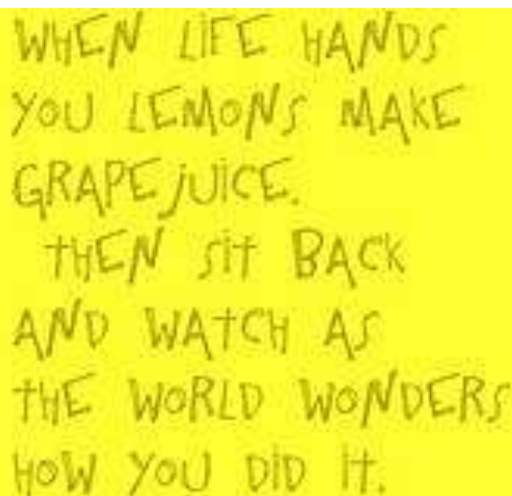 WHEN LIFE HANDS
YOU LEMONS MAKE
GRAPE JUICE.
THEN SIT BACK
AND WATCH AS
THE WORLD WONDERS
HOW YOU DID IT.